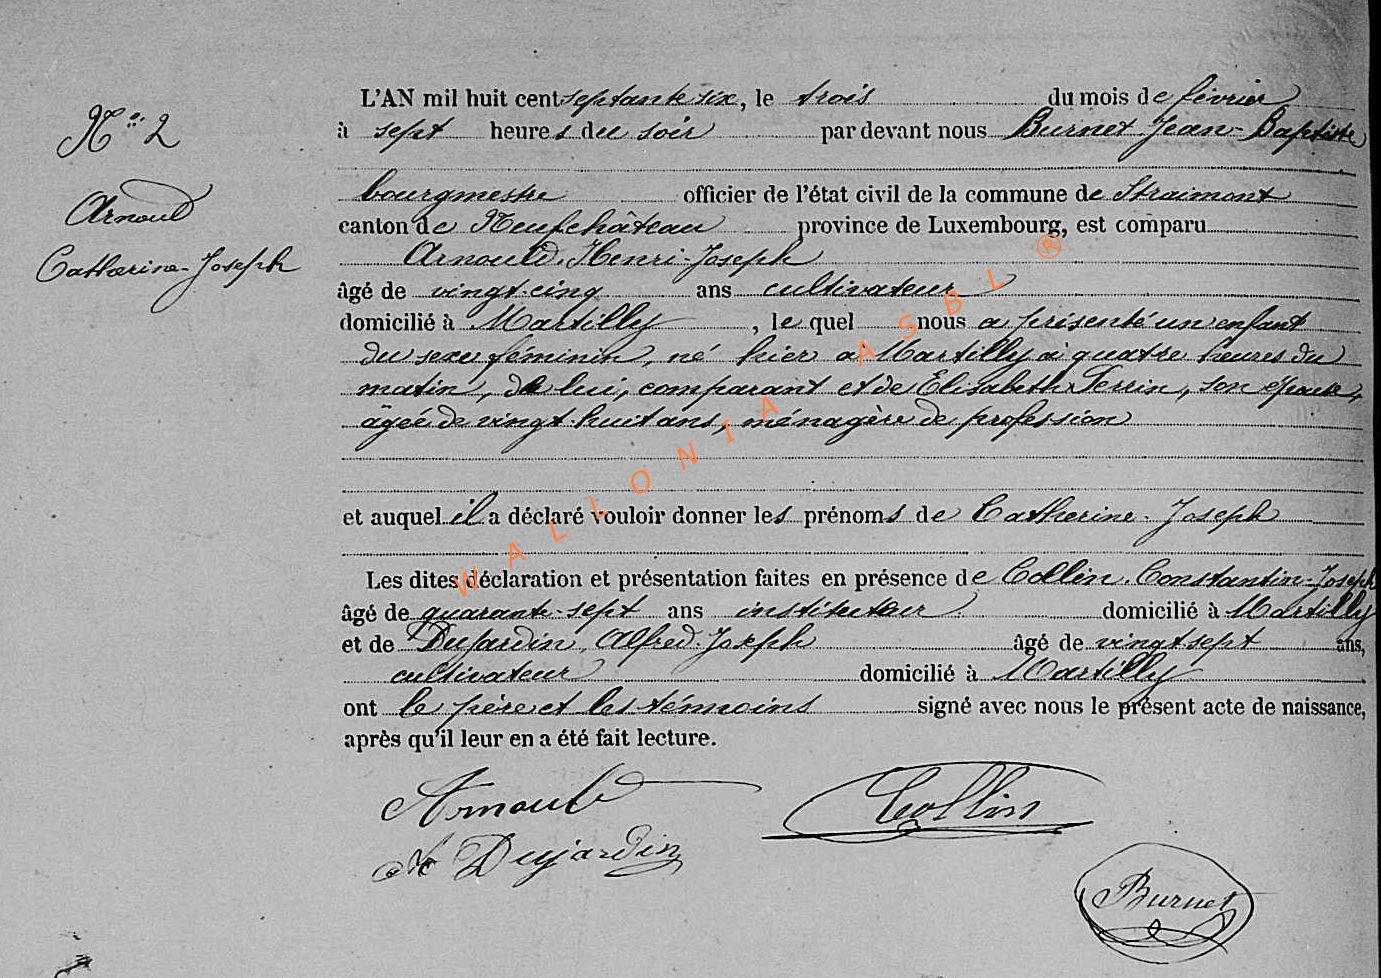 N.o 2
Arnould
Catherine-Joseph
L'AN mil huit cent septante six, le trois du mois de février
à sept heures du soir par devant nous Burnet Jean-Baptiste
bourgmestre officier de l'état civil de la commune de Straimont
canton de Neufchâteau province de Luxembourg, est comparu
Arnould, Henri-Joseph
âgé de vingt-cinq ans cultivateur
domicilié à Martilly, le quel nous a présenté un enfant
du sexe féminin, né hier à Martilly à quatre heures du
matin, de lui, comparant et de Elisabeth Perrin, son épouse,
âgée de vingt-huit ans, ménagère de profession
et auquel il a déclaré vouloir donner les prénoms de Catherine-Joseph
Les dites déclaration et présentation faites en présence de Collin, Constantin-Joseph
âgé de quarante-sept ans instituteur domicilié à Martilly
et de Dujardin, Alfred-Joseph âgé de vingt sept ans,
cultivateur domicilié à Martilly
ont le père et les témoins signé avec nous le présent acte de naissance,
après qu'il leur en a été fait lecture.
Arnould Collin
A Dujardin
Burnet
WALLONIA ASBL ®